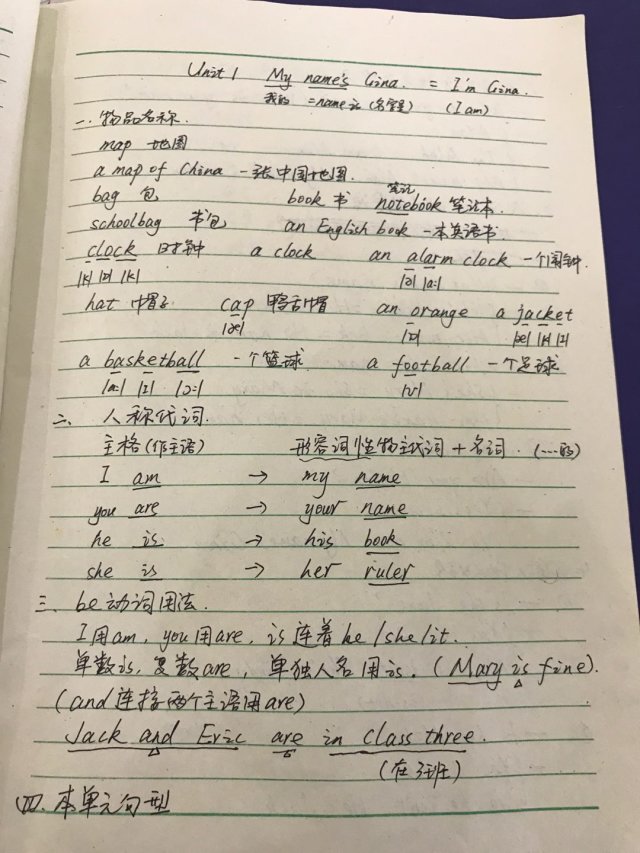 Unit 1 My name's Gina. = I'm Gina.
我的 =name is (名字是) (I am)
一. 物品名称.
map 地图
a map of China 一张中国地图.
笔记
bag 包 book 书 notebook 笔记本.
schoolbag 书包 an English book 一本英语书.
clock 时钟 a clock an alarm clock 一个闹钟.
|k| |ɒ| |k| |ə| |a:|
hat 帽子 cap 鸭舌帽 an orange a jacket
|æ| |ɒ| |æ| |k| |ɪ|
a basketball 一个篮球 a football 一个足球
|a:| |ɪ| |ɔ:| |ʊ|
二、人称代词.
主格(作主语) 形容词性物主代词 + 名词. (…的)
I am → my name
you are → your name
he is → his book
she is → her ruler
三. be动词用法.
I用am, you用are, is连着he/she/it.
单数is, 复数are, 单独人名用is. (Mary is fine).
(and连接两个主语用are)
Jack and Eric are in class three.
(在3班)
四. 本单元句型